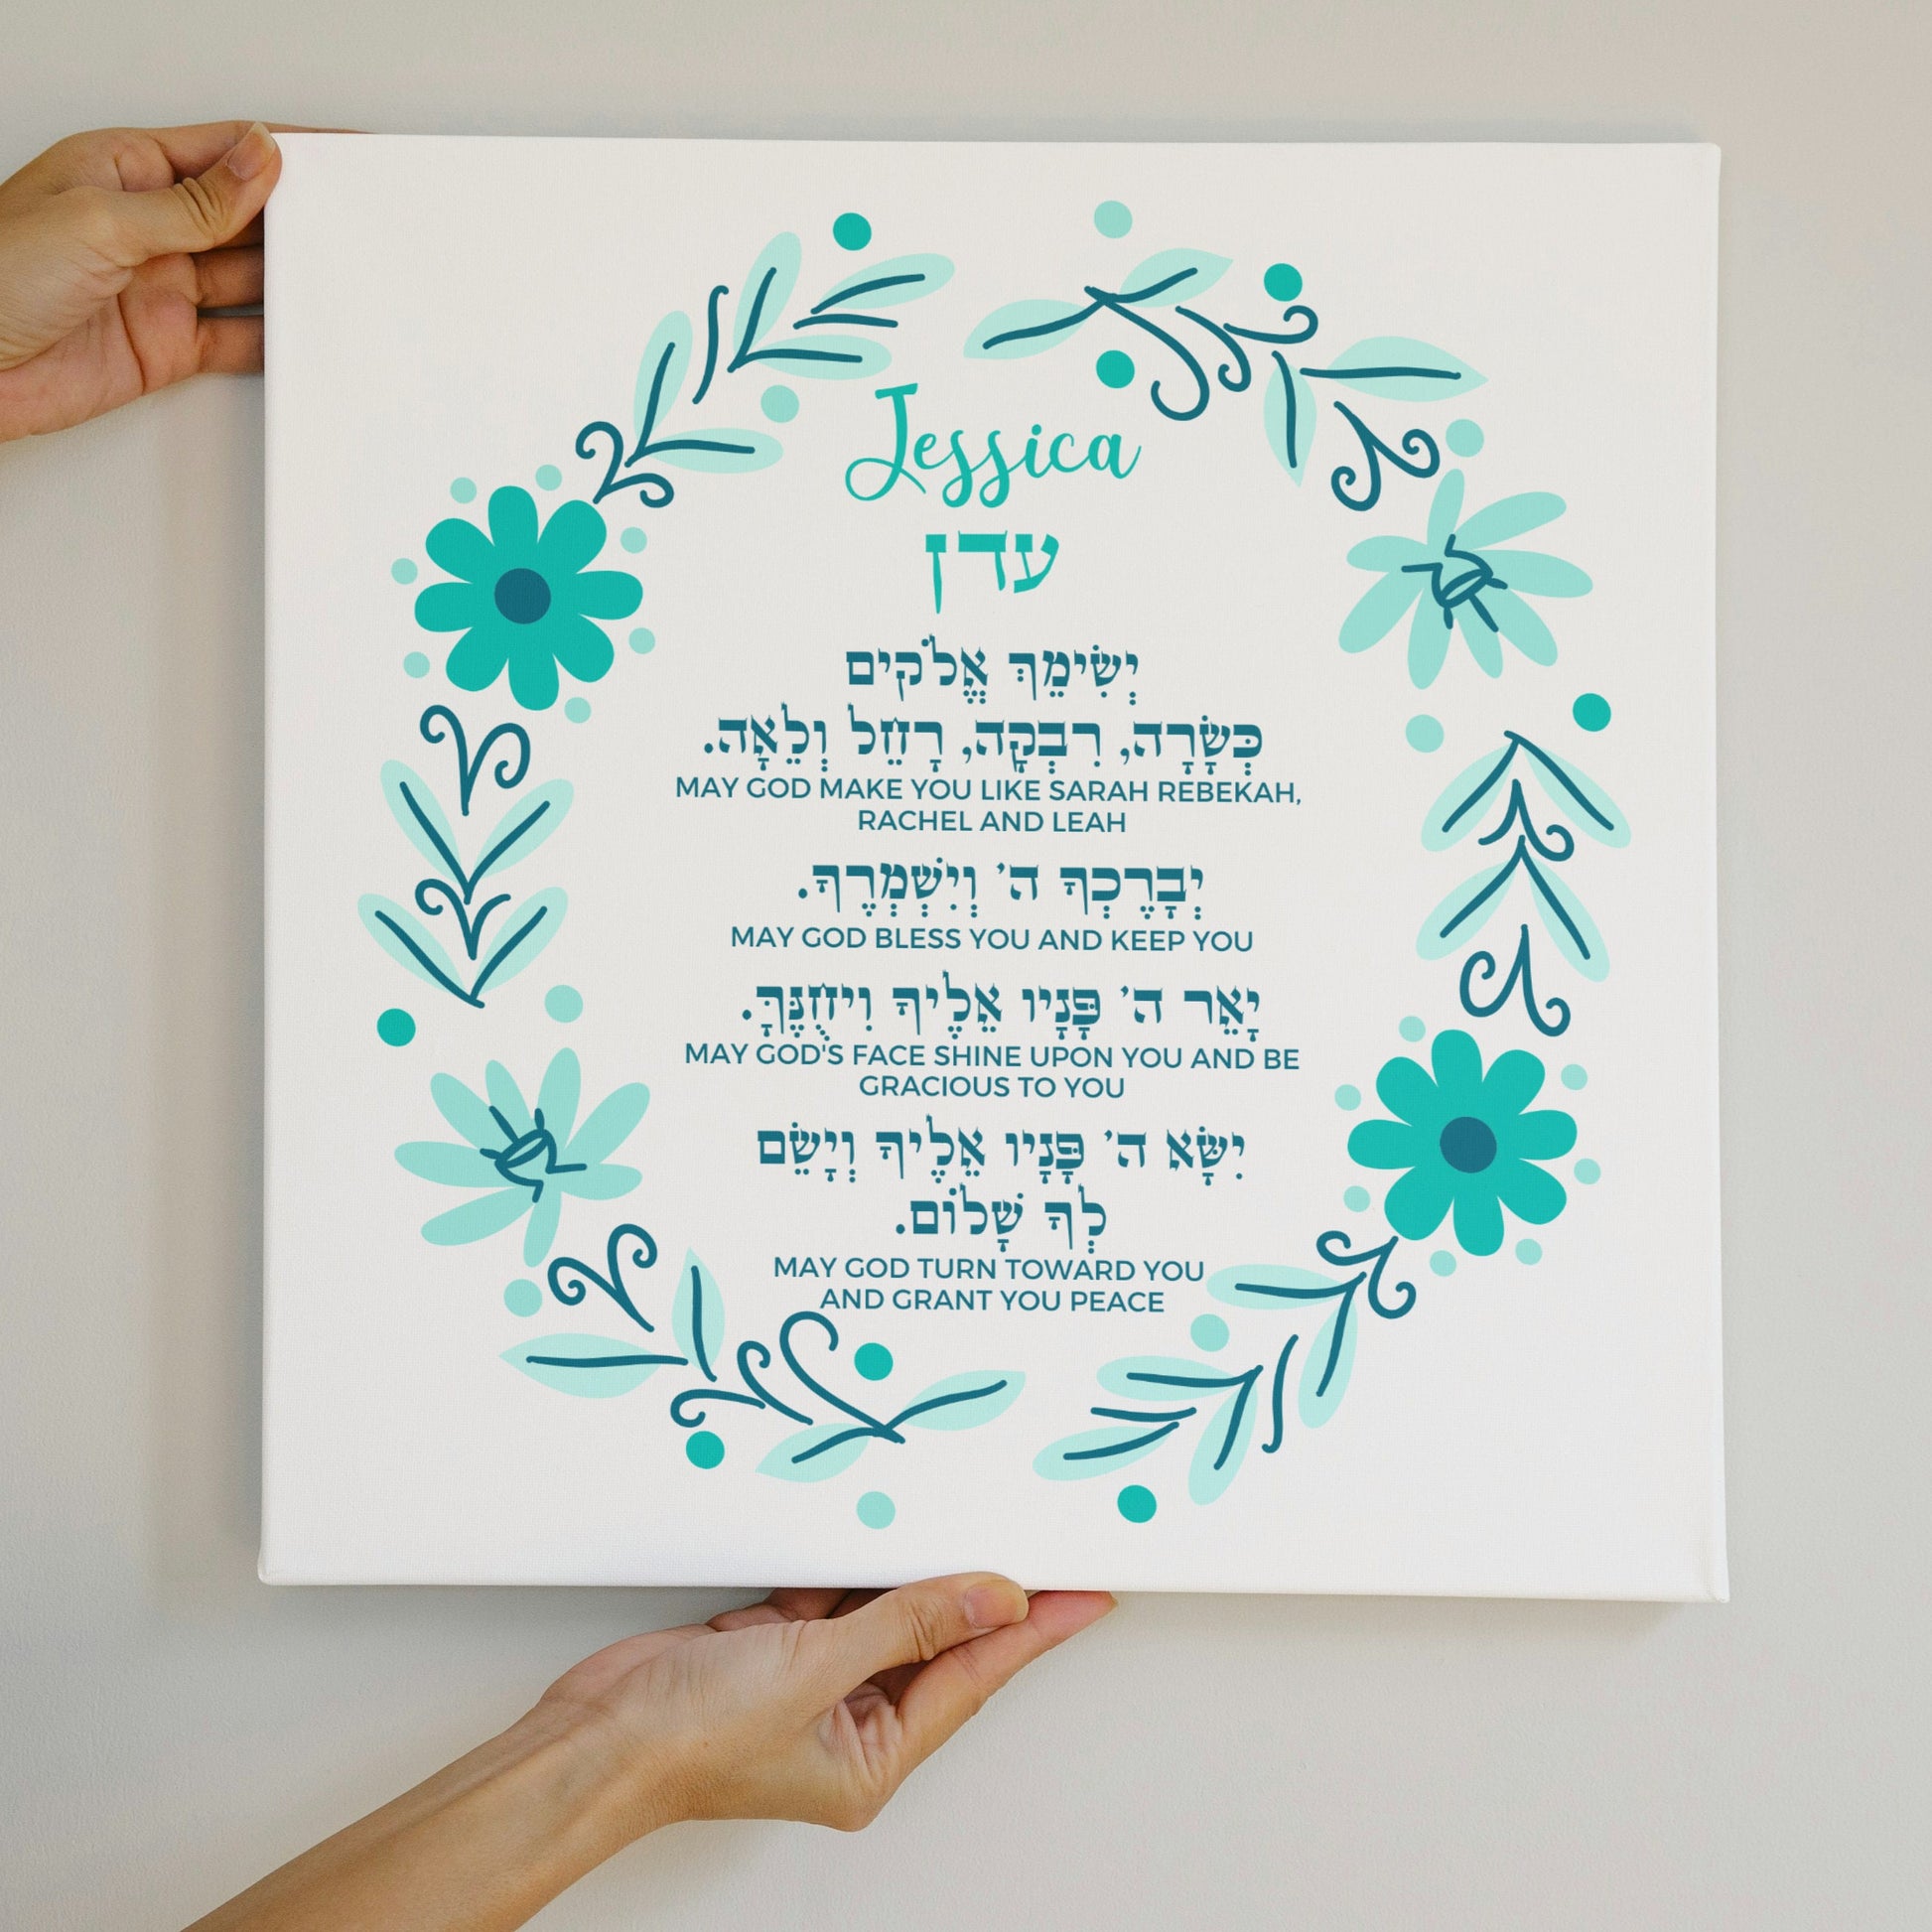 Jessica
עדן
יְשִׂימֵךְ אֱלֹקִים
כְּשָׂרָה, רִבְקָה, רָחֵל וְלֵאָה.
MAY GOD MAKE YOU LIKE SARAH REBEKAH,
RACHEL AND LEAH
יְבָרֶכְךָ ה' וְיִשְׁמְרֶךָ.
MAY GOD BLESS YOU AND KEEP YOU
יָאֵר ה' פָּנָיו אֵלֶיךָ וִיחֻנֶּךָּ.
MAY GOD'S FACE SHINE UPON YOU AND BE
GRACIOUS TO YOU
יִשָּׂא ה' פָּנָיו אֵלֶיךָ וְיָשֵׂם
לְךָ שָׁלוֹם.
MAY GOD TURN TOWARD YOU
AND GRANT YOU PEACE